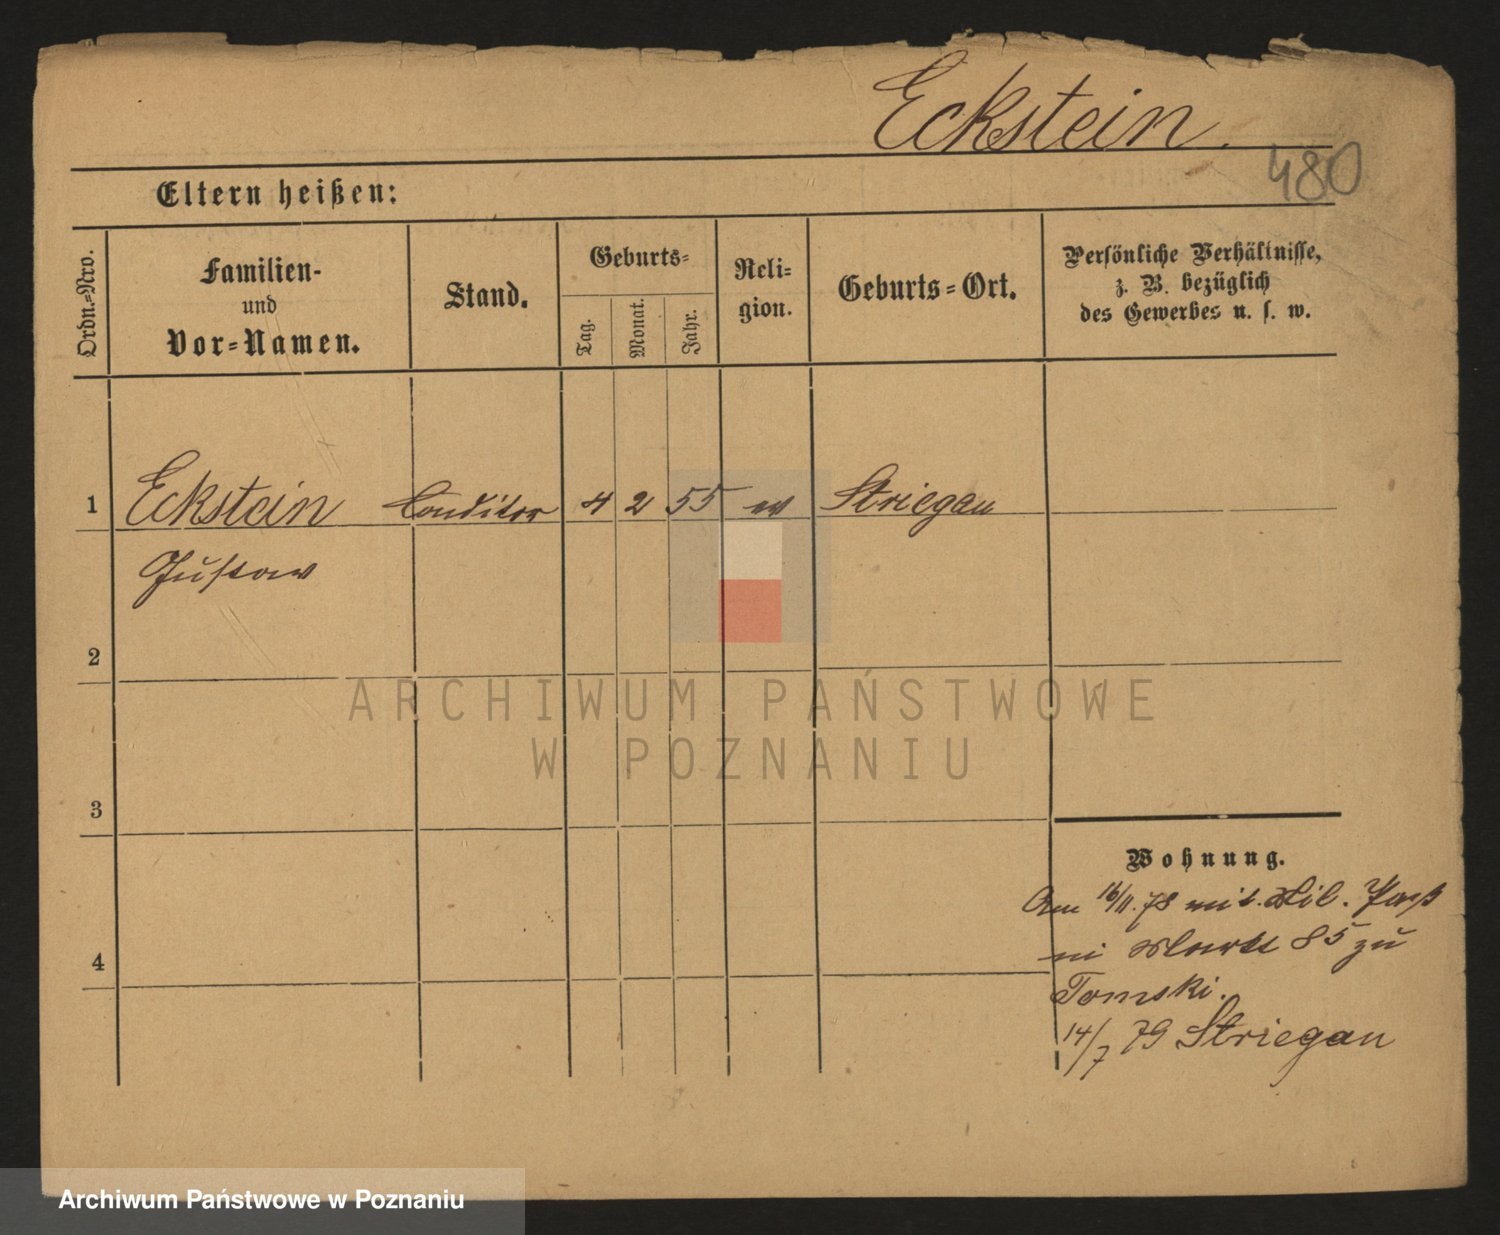 Eckstein.
480
Eltern heißen:
Ordn.=Nro.
Familien-
und
Vor=Namen.
Stand.
Geburts=
Tag.
Monat.
Jahr.
Reli=
gion.
Geburts=Ort.
Persönliche Verhältnisse,
z. B. bezüglich
des Gewerbes u. s. w.
1 Eckstein Conditor 4 2 55 ev Striegau
Gustav
2
ARCHIWUM PAŃSTWOWE
W POZNANIU
3
4
Wohnung.
Am 16/11. 78 mit. Paß
Markt 85 zu
Tomski.
14/7 79 Striegau
Archiwum Państwowe w Poznaniu